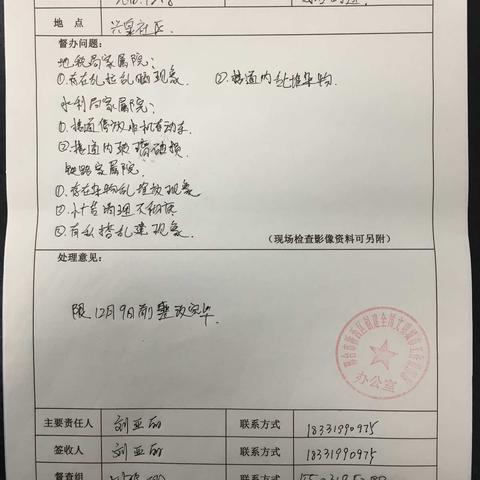 地点 兴泉社区
督办问题：
地税局家属院：
①存在乱拉乱晒现象 ②楼道内乱堆杂物
水利局家属院：
①楼道停放电机车动车
②楼道内玻璃破损
铁路家属院：
①存在杂物乱堆放现象
②小广告清理不彻底
③有私搭乱建现象
（现场检查影像资料可另附）
处理意见：
限12月9日前整改完毕
办公室
主要责任人 刘亚丽 联系方式 18331990975
签收人 刘亚丽 联系方式 18331990975
督查组 联系方式